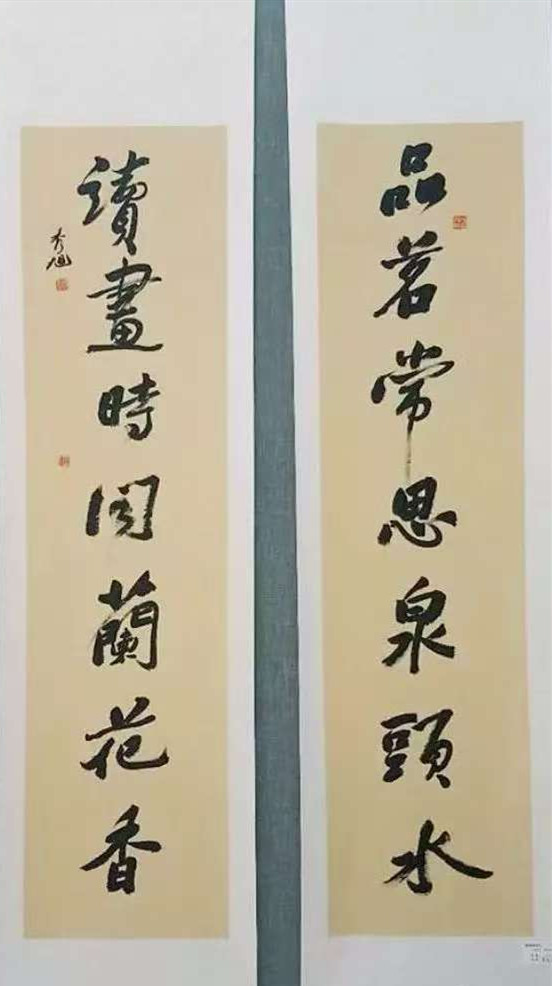 品茗常思泉頭水
讀畫時聞蘭花香